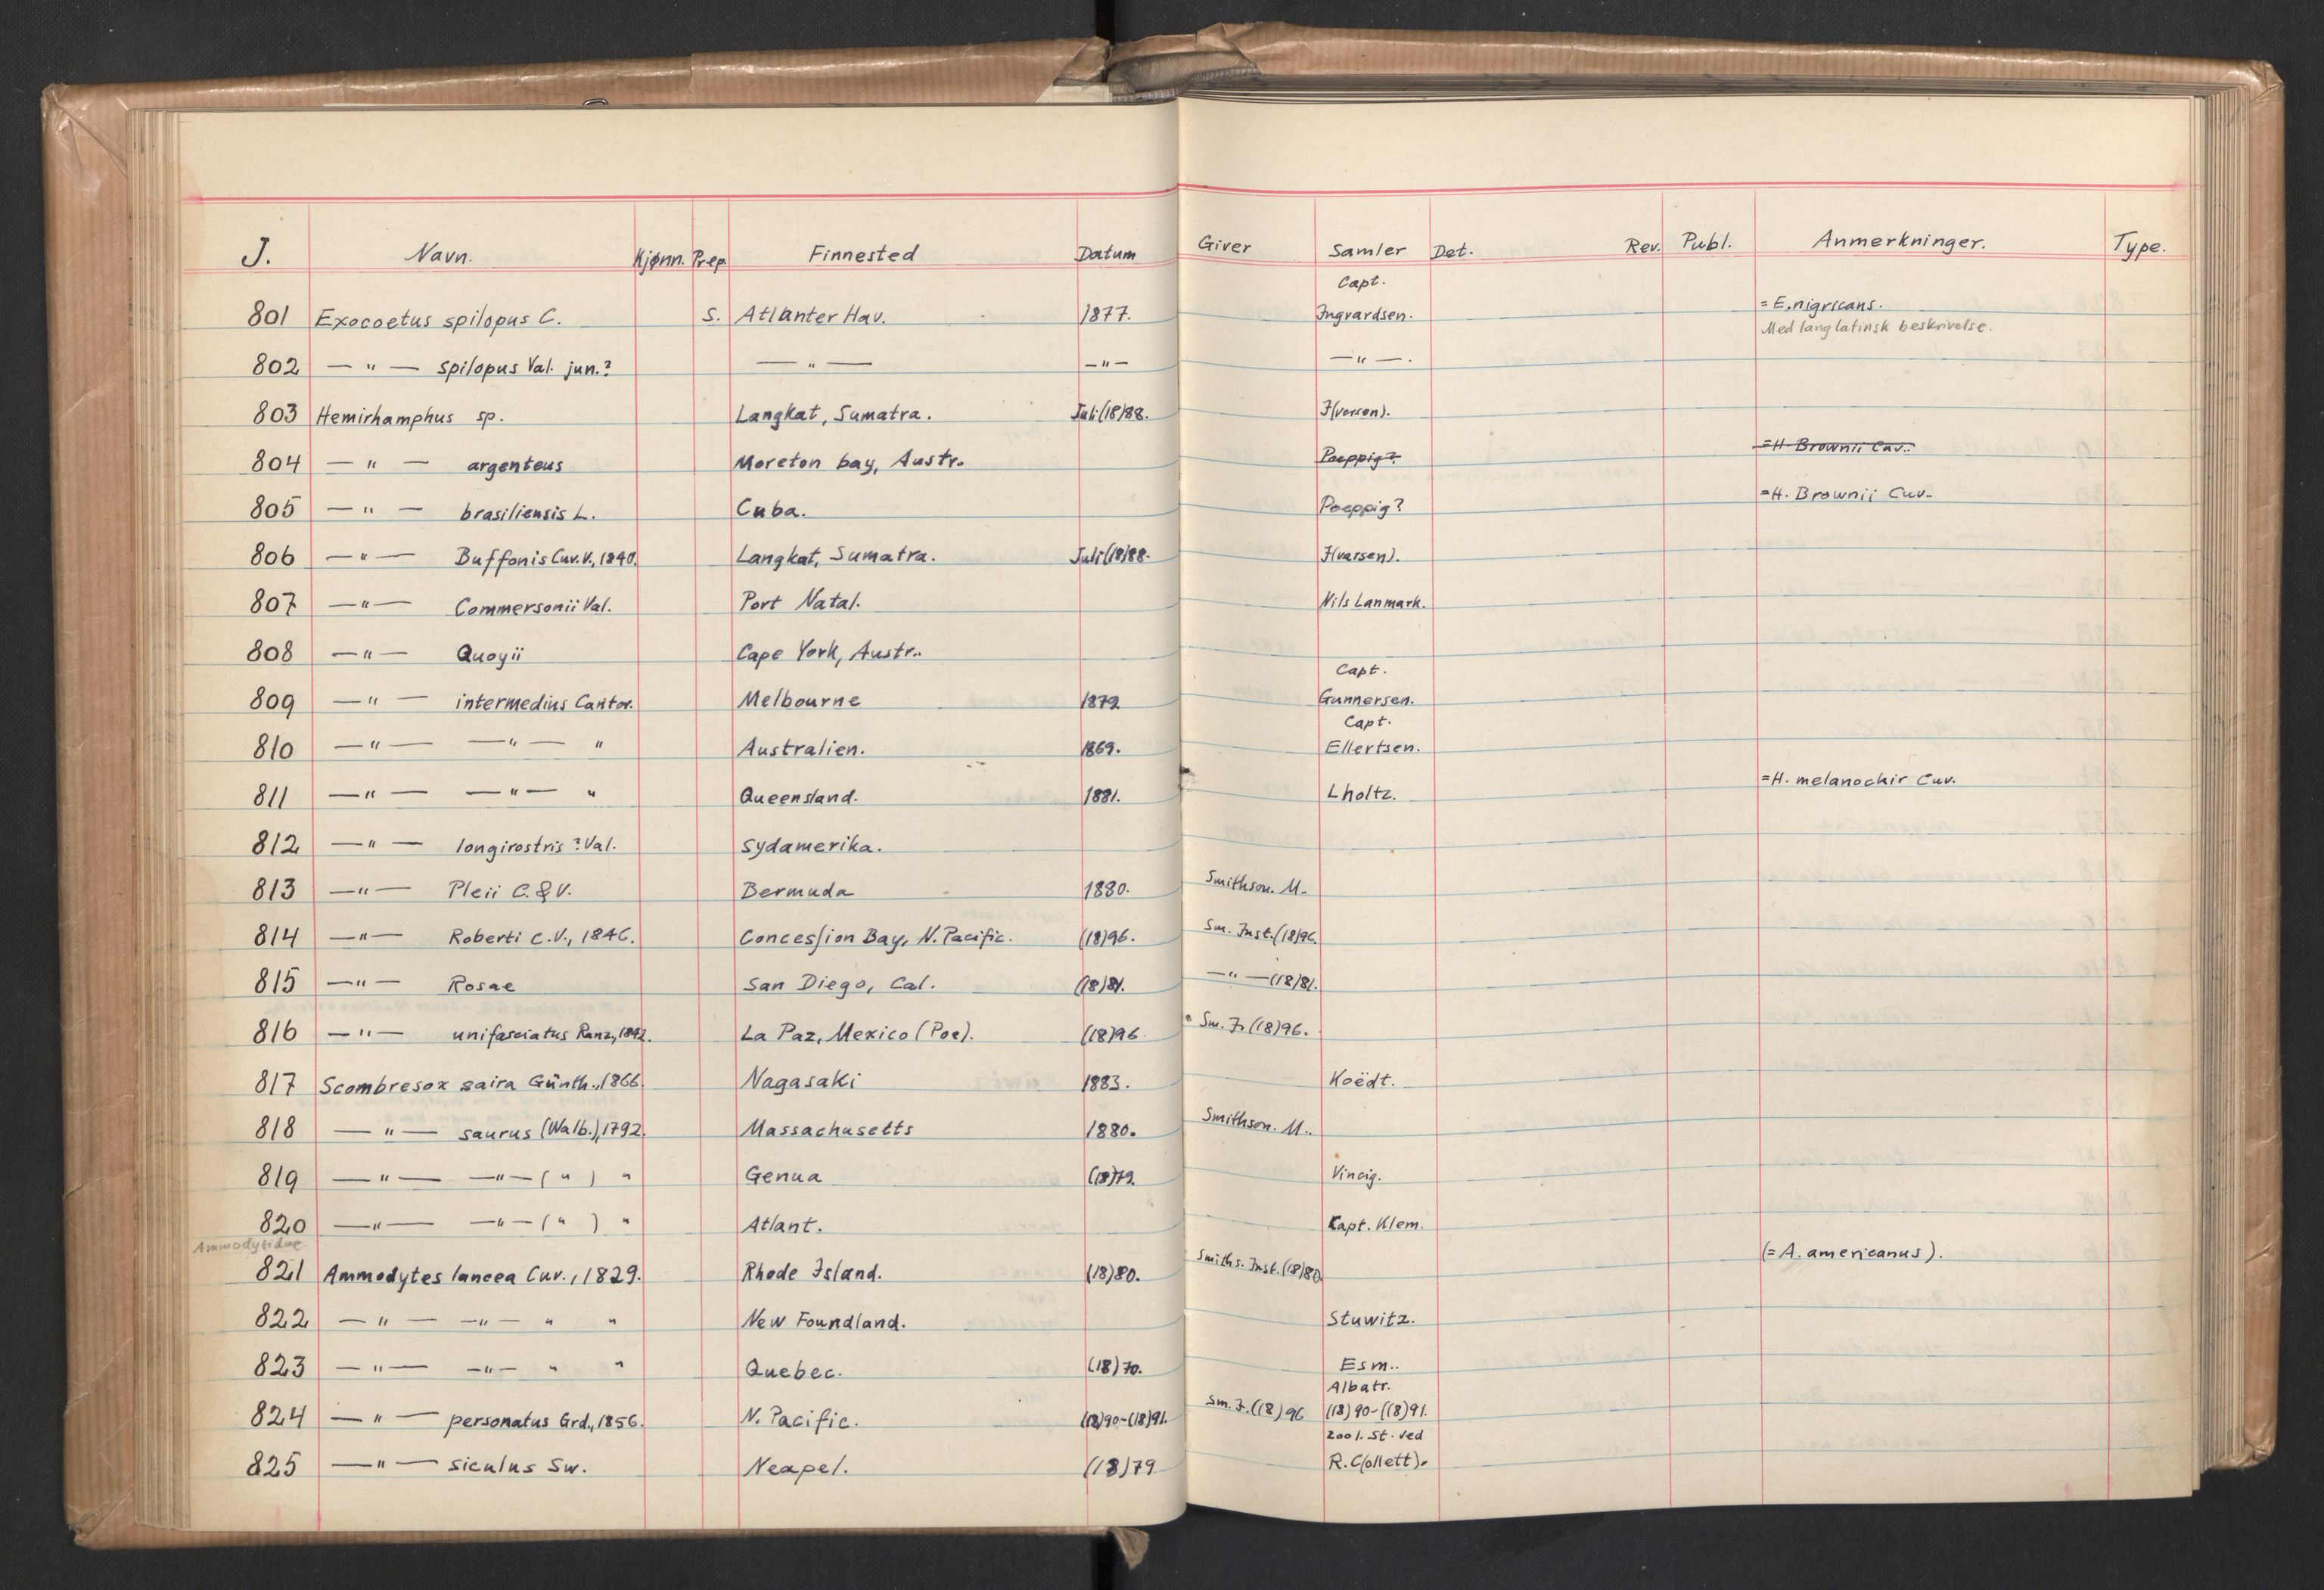 J. Navn. Kjønn. Prep. Finnested Datum Giver Samler Det. Rev. Publ. Anmerkninger. Type.
Capt.
801 Exocoetus spilopus C. S. Atlanter Hav. 1877. Ingvardsen. = E. nigricans.
Med lang latinsk beskrivelse.
802 — " — spilopus Val. jun.? — " — — " — — " — .
803 Hemirhamphus sp. Langkat, Sumatra. Juli (18)88. I(versen).
804 — " — argenteus Moreton bay, Austr. Poeppig? =H. Brownii Cuv..
805 — " — brasiliensis L. Cuba. Poeppig? =H. Brownii Cuv..
806 — " — Buffonis Cuv. V., 1840. Langkat, Sumatra. Juli (18)88. I(varsen).
807 — " — Commersonii Val. Port Natal. Nils Lanmark.
808 — " — Quoyii Cape York, Austr..
Capt.
809 — " — intermedius Cantor. Melbourne 1879 Gunnersen.
Capt.
810 — " — — " — " Australien. 1869. Ellertsen.
811 — " — — " — " Queensland. 1881. Lholtz. =H. melanochir Cuv.
812 — " — longirostris ? Val. Sydamerika.
813 — " — Pleii C. & V. Bermuda 1880. Smithson. M.
814 — " — Roberti C. V., 1846. Concession Bay, N. Pacific. (18)96. Sm. Inst. (18)96.
815 — " — Rosae San Diego, Cal. (18)81. — " — (18)81.
816 — " — unifasciatus Ranz., 1842. La Paz, Mexico (Poe). (18)96 Sm. I. (18)96.
817 Scombresox saira Günth., 1866. Nagasaki 1883. Koëdt.
818 — " — saurus (Walb.), 1792. Massachusetts 1880. Smithson. M..
819 — " — — " — ( " ) " Genua (18)79 Vincig.
820 — " — — " — ( " ) " Atlant. Capt. Klem.
Ammodytidae
821 Ammodytes lancea Cuv., 1829. Rhode Island. (18)80. Smiths. Inst. (18)80 (= A. americanus).
822 — " — — " — " " New Foundland. Stuwitz.
823 — " — — " — " " Quebec. (18)70. Esm..
Albatr.
824 — " — personatus Grd., 1856. N. Pacific. (18)90-(18)91. Sm. I. (18)96 (18)90-(18)91.
Zool. St. ved
825 — " — siculus Sw. Neapel. (18)79 R. C(ollett).